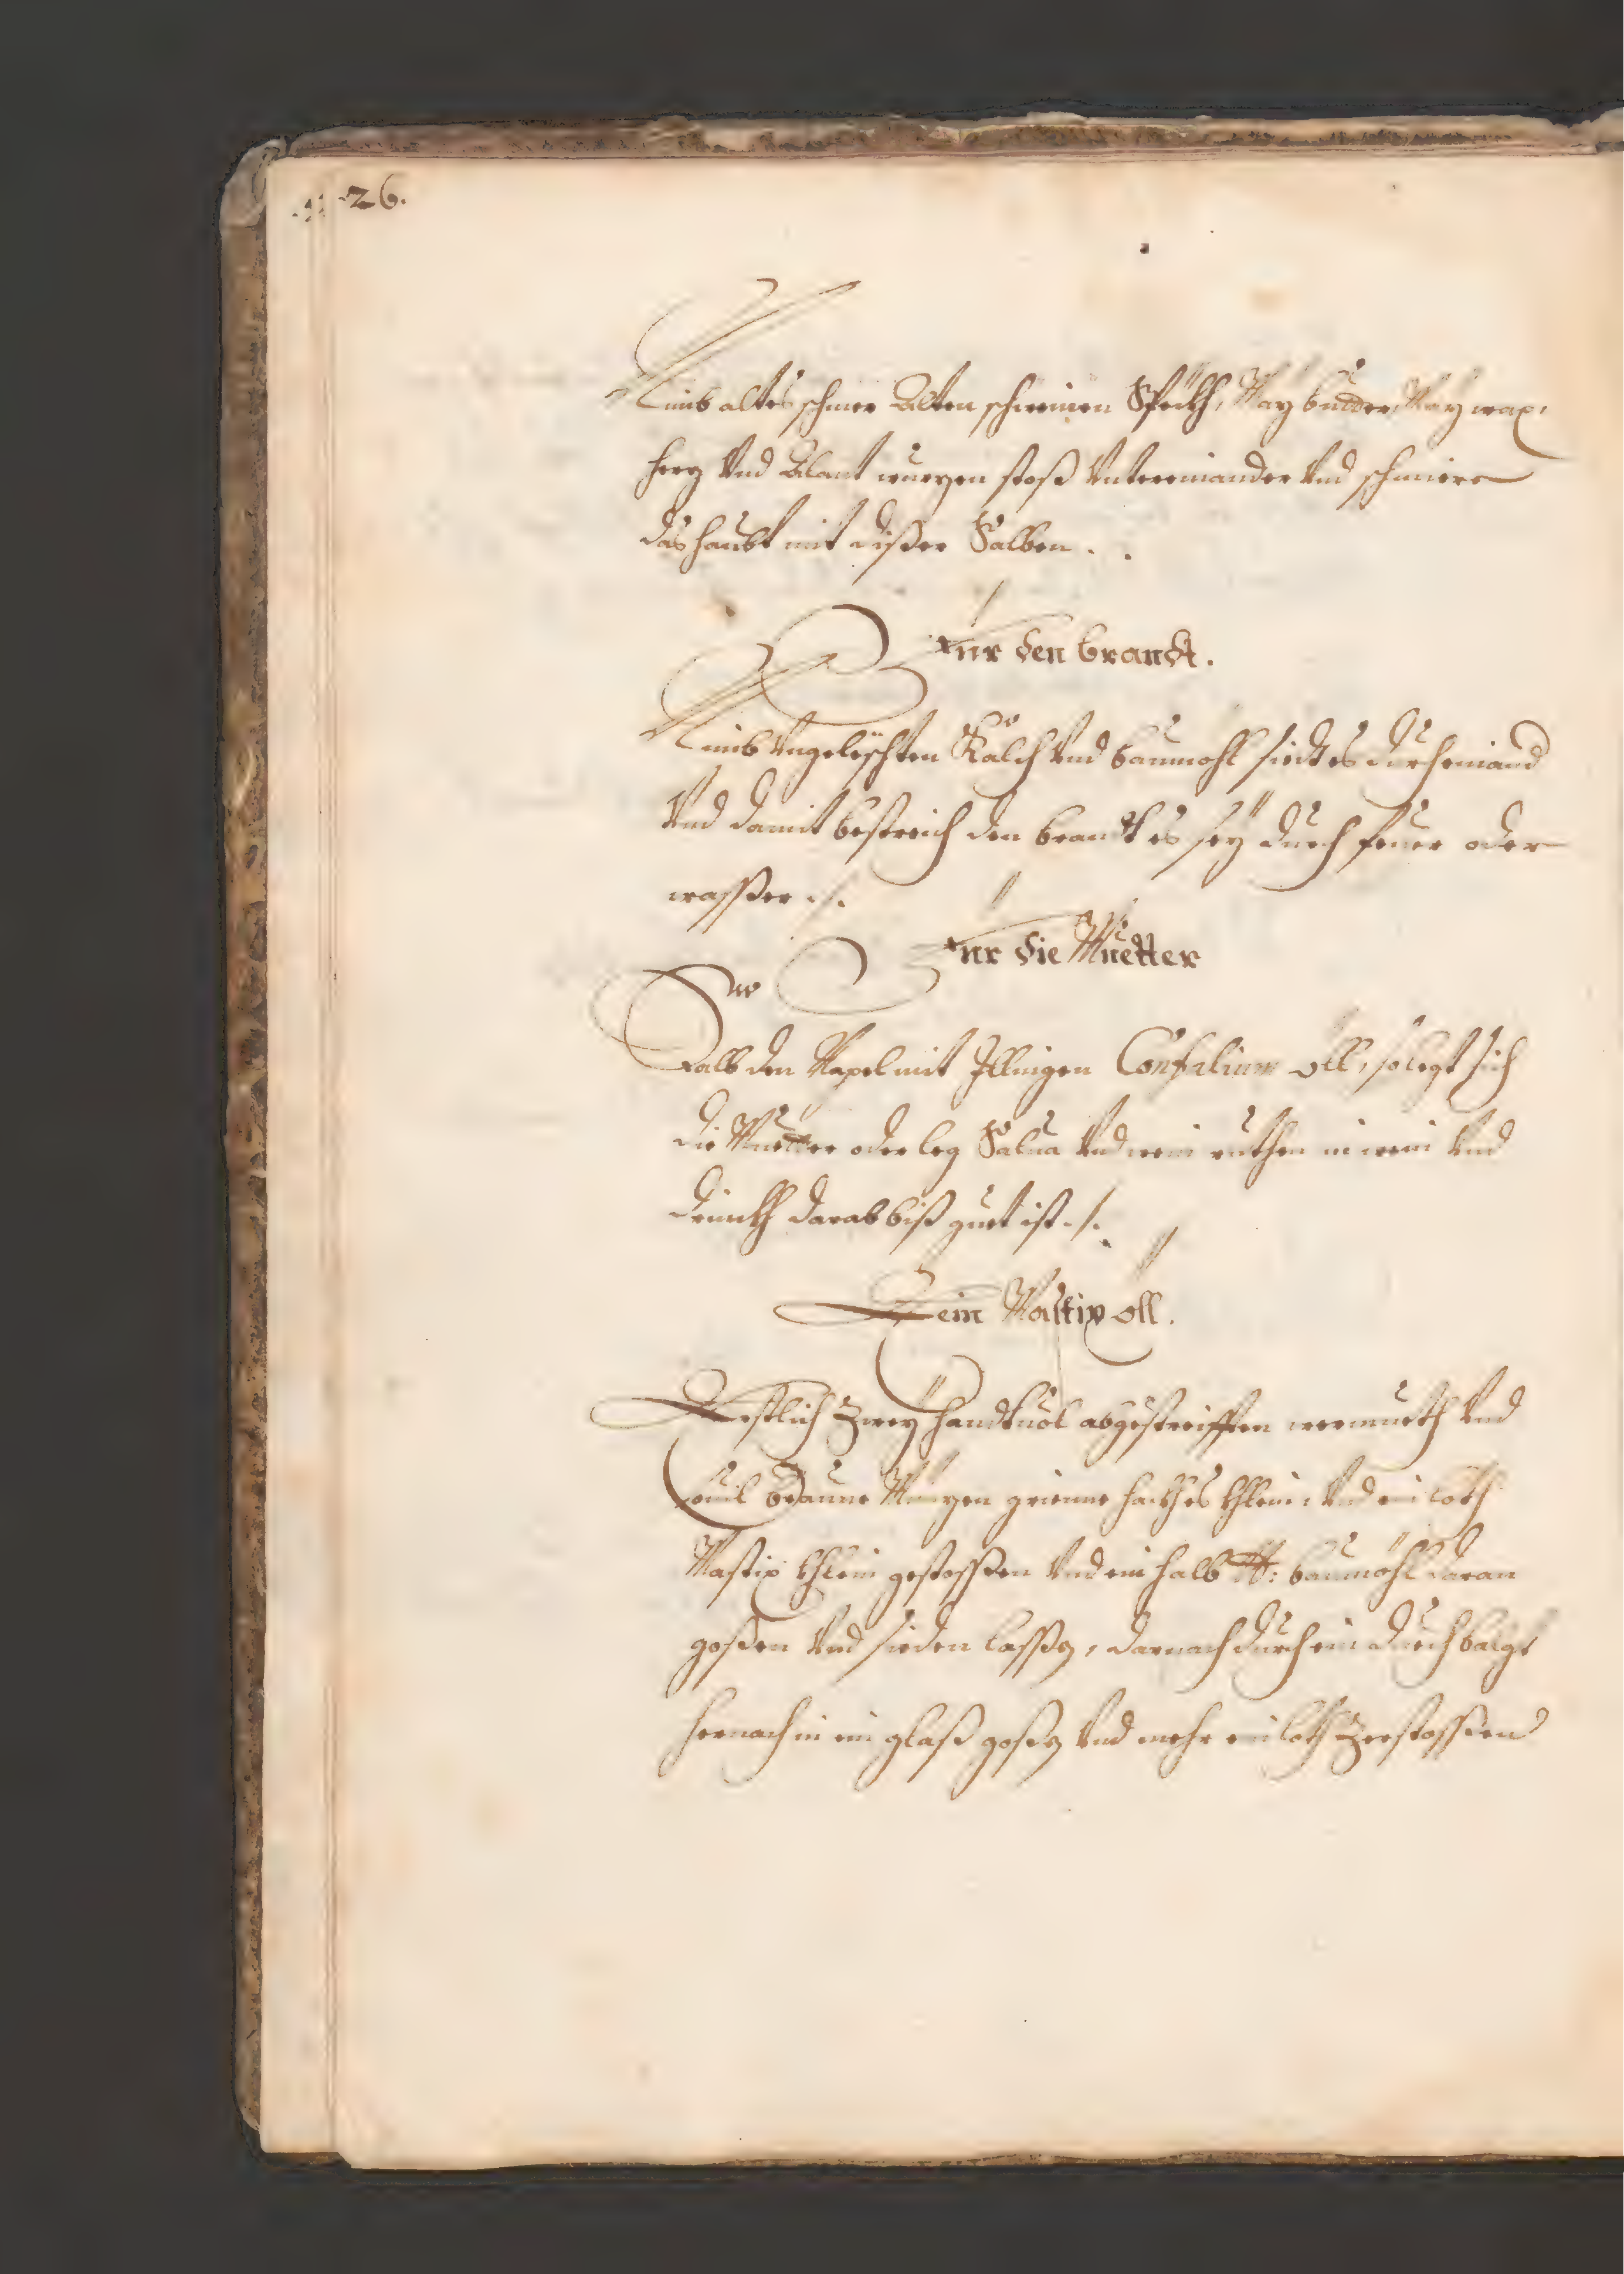 26.
Nimb altes schmer Alten schweinen Speckh, May budder, May wax,
herz Vnd Alant wurzen stoß Vntereinander Vnd schmiere
das haubt mit dißer Salben . .
Fur den brandt.
Nimb Vngeleschten Kalch Vnd baumohl siedt es durcheinand
Vnd damit bestreich den brandt es seÿ durch feuer oder
wasser ./.
Fur die Muetter
Salb den Napel mit Illingen öll, so legt sich
die Muetter oder leg Salua Vnd wein ruthen in wein Vnd
drinckh darab biß guet ist ./.
Ein Mastix öll.
Erstlich Zweÿ handtuol abgestreifften wermueth Vnd
souil Braune Münzen grienne hackh es khlein, Vnd ein loth
Mastix khlein gestossen Vnd ein halb ℔: baumöhl daran
goßen Vnd sieden lassen, darnach durch ein duech
hernach in ein glaß goßen Vnd mehr ein loth Zerstossen